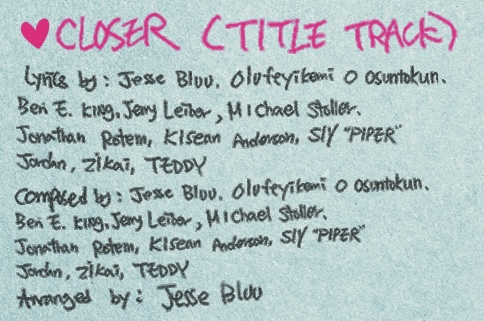 ♥ CLOSER (TITLE TRACK)
Lyrics by: Jesse Bluu. Olufeyikemi O Osuntokun.
Ben E. King, Jerry Leiber, Michael Stoller.
Jonathan Rotem, Kisean Anderson, SIY "PIPER"
Jordan, Zikai, TEDDY
Composed by: Jesse Bluu. Olufeyikemi O Osuntokun.
Ben E. King, Jerry Leiber, Michael Stoller.
Jonathan Rotem, Kisean Anderson, SIY "PIPER"
Jordan, Zikai, TEDDY
Arranged by: Jesse Bluu